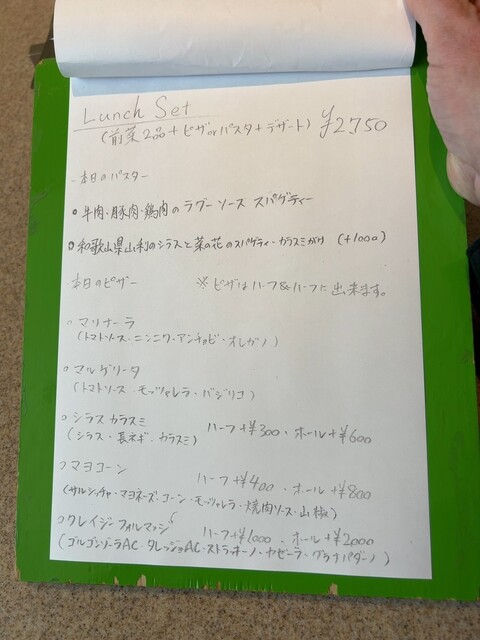 Lunch Set
(前菜2品+ピザorパスタ+デザート) ¥2,750
・本日のパスター
・牛肉・豚肉・鶏肉のラグーソース スパゲティー
・和歌山県山利のシラスと菜の花のスパゲティーカラスミがけ (+1000)
・本日のピザー ※ピザはハーフ&ハーフに出来ます。
○マリナーラ
(トマトソース・ニンニク・アンチョビ・オレガノ)
○マルゲリータ
(トマトソース・モッツァレラ・バジリコ)
○シラスカラスミ ハーフ+¥300・ホール+¥600
(シラス・長ネギ・カラスミ)
○マヨコーン ハーフ+¥400・ホール+¥800
(サルシッチャ・マヨネーズ・コーン・モッツァレラ・焼肉ソース・山椒)
○クレイジーフォルマッジ ハーフ+¥1000・ホール+¥2000
(ゴルゴンゾーラAC・タレッジョAC・ストラッキーノ・カゼーラ・グラナパダーノ)